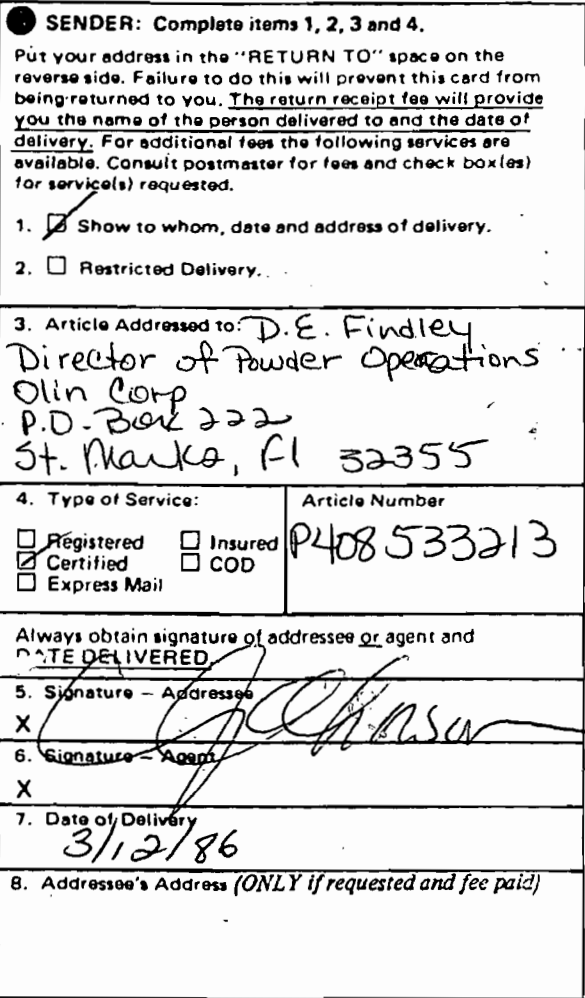 SENDER: Complete items 1, 2, 3 and 4.
Put your address in the "RETURN TO" space on the
reverse side. Failure to do this will prevent this card from
being returned to you. The return receipt fee will provide
you the name of the person delivered to and the date of
delivery. For additional fees the following services are
available. Consult postmaster for fees and check box(es)
for service(s) requested.
1. ☑ Show to whom, date and address of delivery.
2. ☐ Restricted Delivery.
3. Article Addressed to: D.E. Findley
Director of Powder Operations
Olin Corp
P.O. Box 222
St. Marks, Fl 32355
4. Type of Service:
☐ Registered ☐ Insured
☑ Certified ☐ COD
☐ Express Mail
Article Number
P408 533213
Always obtain signature of addressee or agent and
DATE DELIVERED.
5. Signature – Addressee
X
6. Signature – Agent
X
7. Date of Delivery
3/12/86
8. Addressee's Address (ONLY if requested and fee paid)